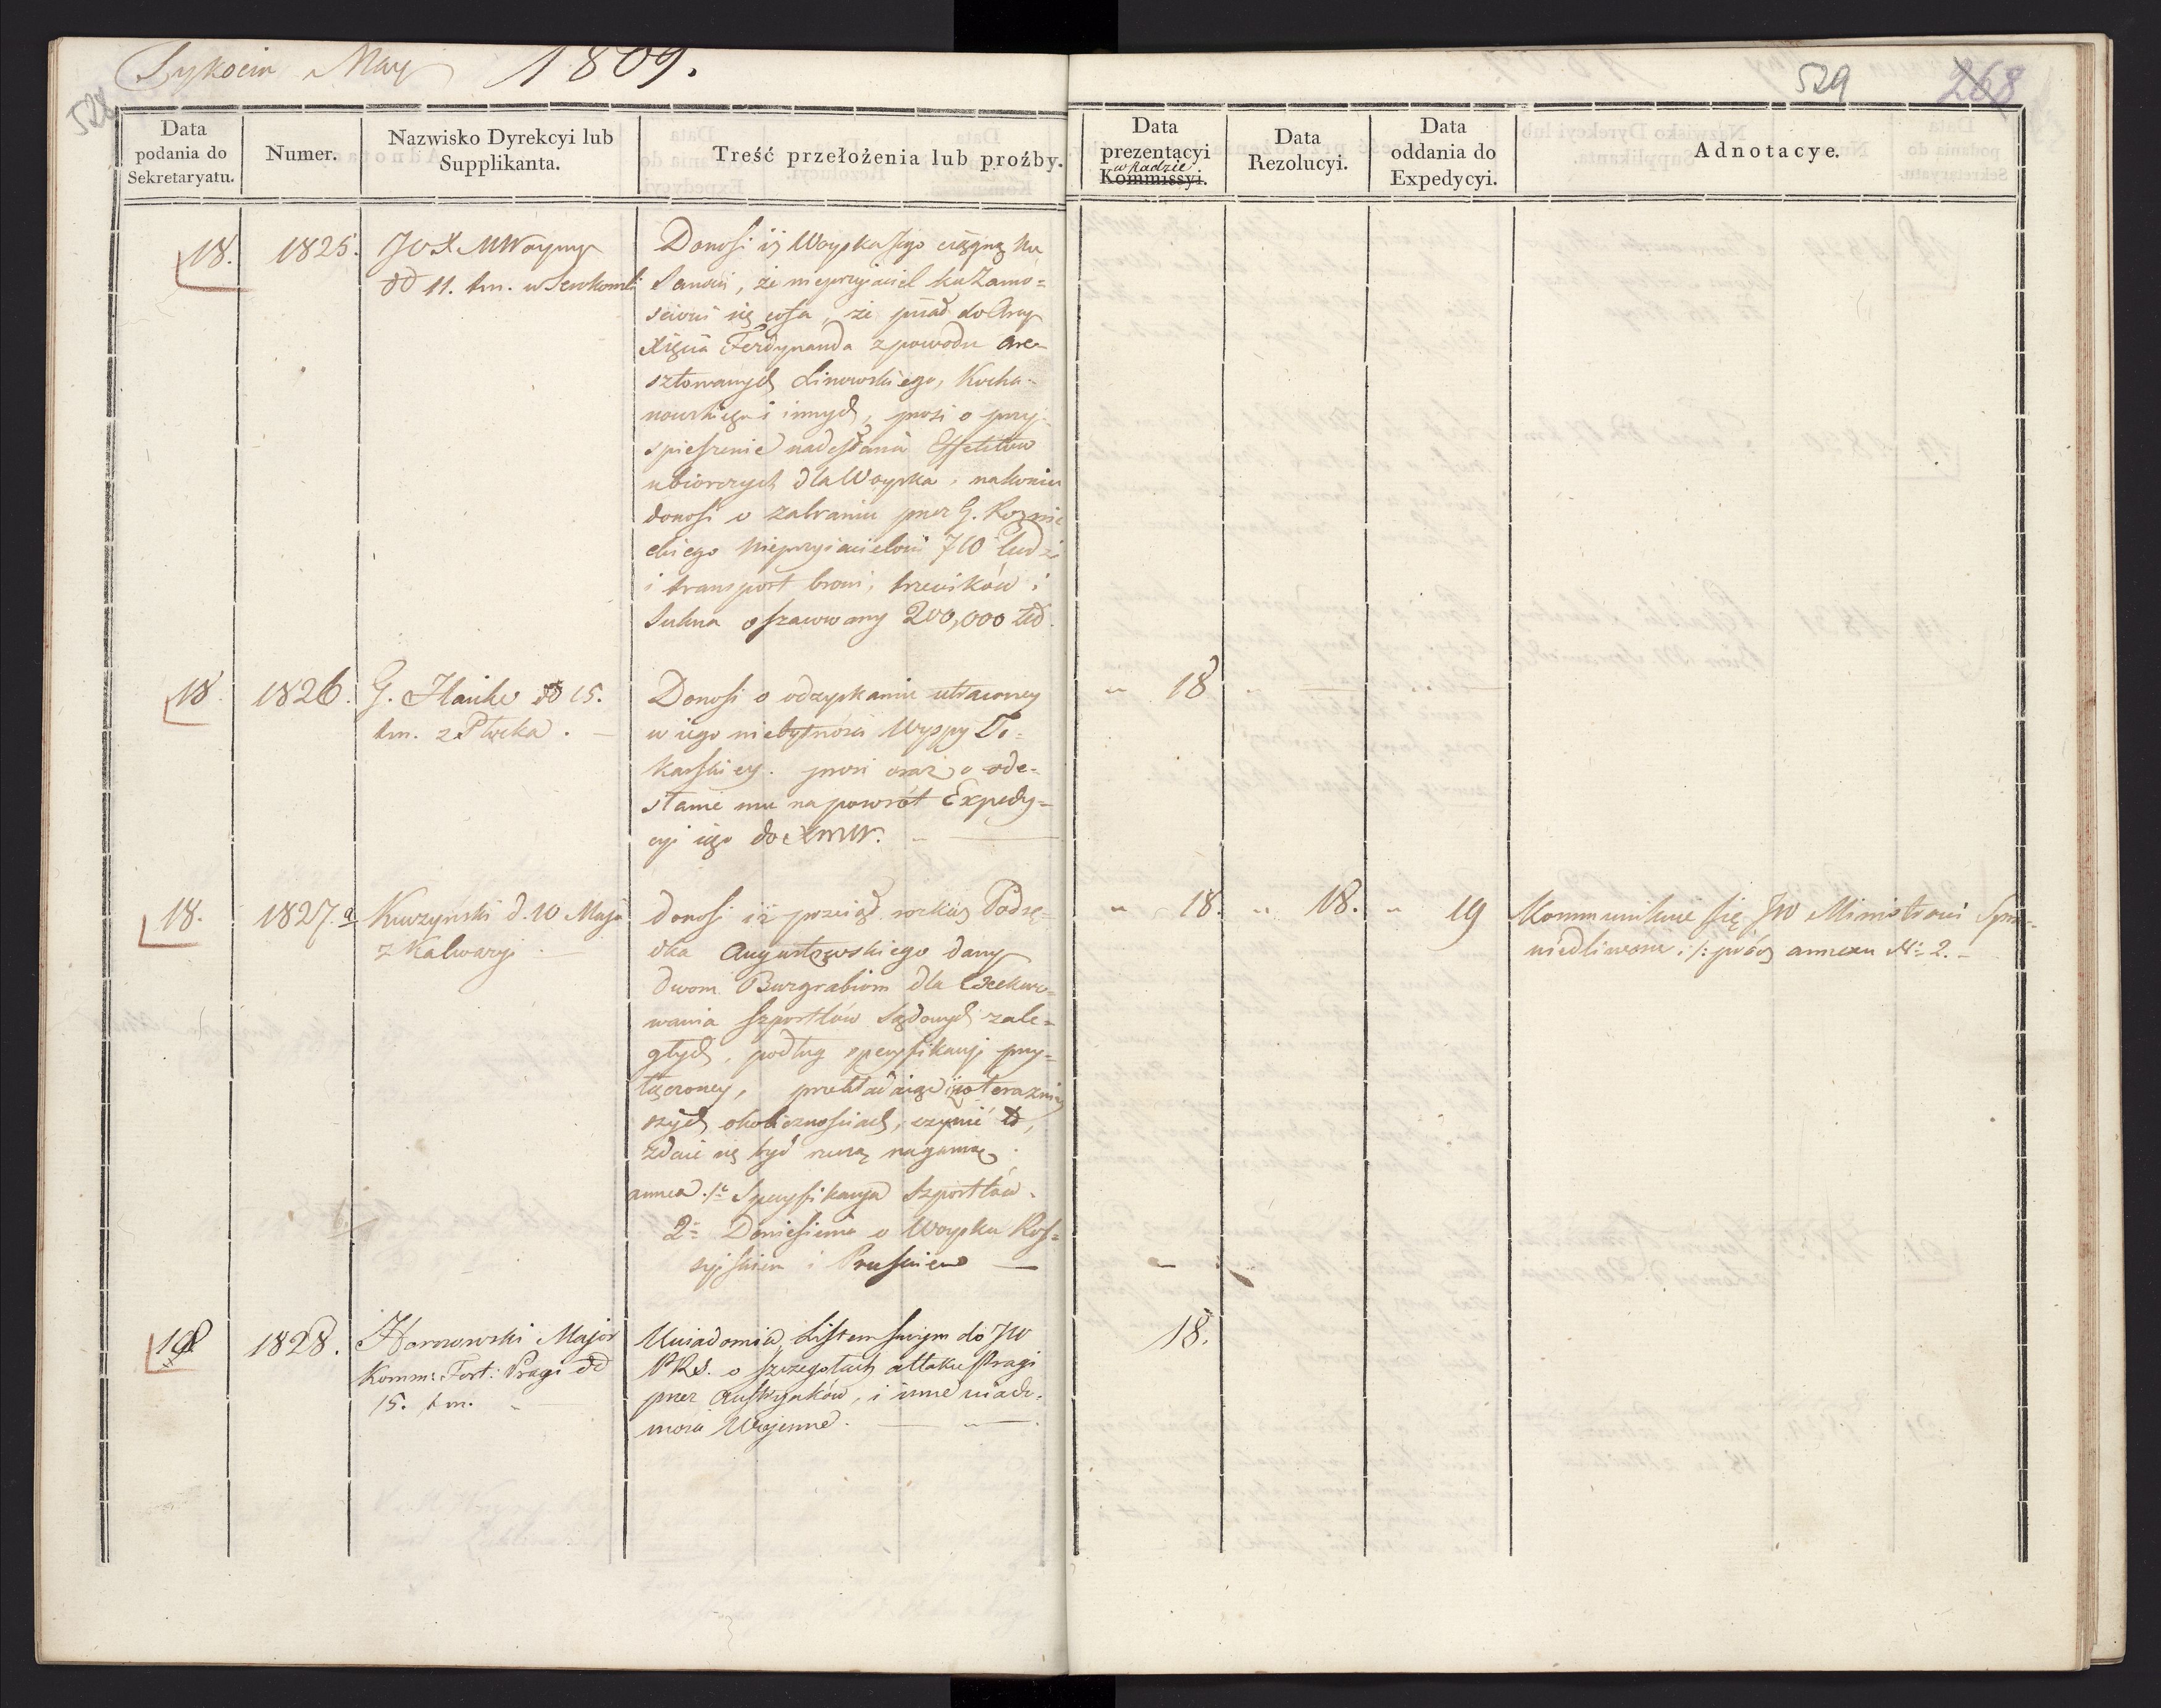 Tykocin May 1809.
528
529
268
Data
podania do
Sekretaryatu.
Numer.
Nazwisko Dyrekcyi lub
Supplikanta.
Treść przełożenia lub proźby.
Data
prezentacyi
w Radzie
Kommissyi.
Data
Rezolucyi.
Data
oddania do
Expedycyi.
Adnotacye.
18. 1825. JOX MWoyny
dd 11. t.m. w
Donosi iż Woyska Jego ciągną ku
Sanowi, że nieprzyjaciel ku Zamo=
sciowi się cofa, że pisał do Arcy
Xięcia Ferdynanda z powodu are-
sztowanych Linowskiego, Kocha-
nowskiego i innych, prosi o przy-
spieszenie nadesłania Effektów
ubiorczych dla Woyska, nakoniec
donosi o zabraniu przez G. Roznie
ckiego Nieprzyiacielowi 710 ludzi
i transport broni, trzewików i
Sukna oszacowany 200,000 zło.
18. 1826. G. Hauke dd 15.
t.m. z Płocka. —
Donosi o odzyskaniu utraconey
w iego niebytności Wyspy To=
karskiey. prosi oraz o ode-
słanie mu na powrót Expedy=
cyi iego do XMW. —
„ 18 „ —
18. 1827. a Kuczynski d. 10 Maja
z Kalwaryi —
donosi iż przeiął rozkaz Podsę-
dka Augustowskiego dany
dwom Burgrabiom dla Exekwo=
wania szportlów Sądowych zale=
głych, podług specyfikacyi przy=
łączoney, przekładaiąc iż w terazniey
szych okolicznościach, czynić to,
zdaie się być rzeczą naganną.
annex. 1o Specyfikacya Szportlów.
2o Doniesienie o Woysku Ros=
syiskim i Pruskiem —
„ 18. „ 18. „ 19
Kommunikuie się JW Ministrowi Spra=
wiedliwości /: prócz annexu No 2. —
18 1828. Hornowski Major
Komm: Fort: Pragi dd
15. t.m. —
Uwiadomia Listem swym do JW
PRS. o szczegołach attaku Pragi
przez Austryaków, i inne wiado-
mości Wojenne. —
18.